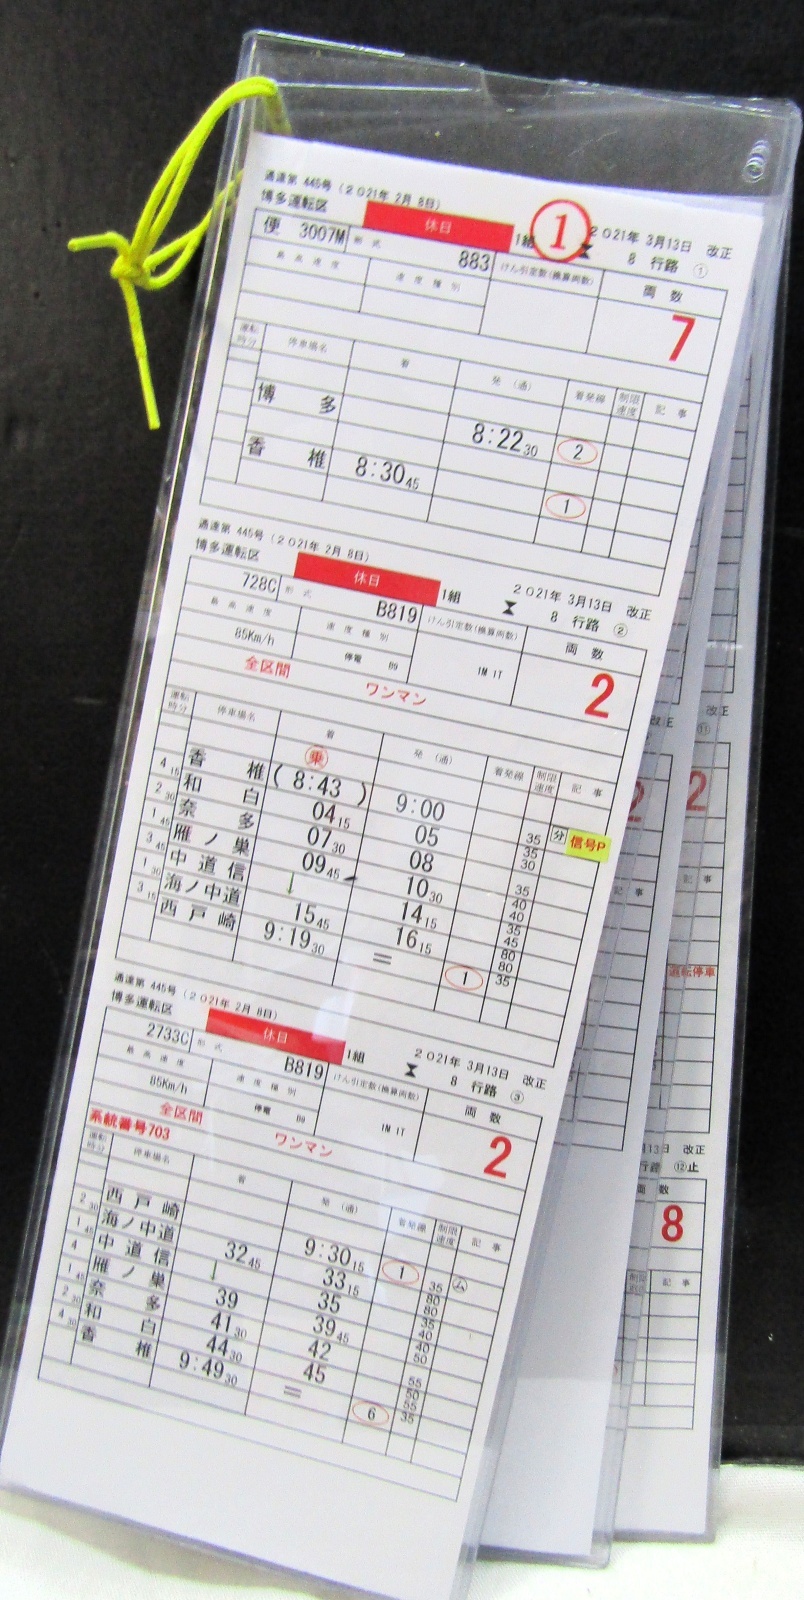 通達第 445号 (2021年 2月 8日)
博多運転区 休日 1組 ① 2021年 3月13日 改正
8 行路 ①
便 3007M 形式 883 けん引定数(換算両数) 両数
最高速度 速度種別 7
運転時分 停車場名 着 発 (通) 着発線 制限速度 記事
博多 8:22 30 2
香椎 8:30 45 1
通達第 445号 (2021年 2月 8日)
博多運転区 休日 1組 2021年 3月13日 改正
8 行路 ②
728C 形式 B819 けん引定数(換算両数) 両数
最高速度 速度種別 2
85Km/h 停電 B9 1M 1T
全区間 ワンマン
運転時分 停車場名 着 発 (通) 着発線 制限速度 記事
乗
香椎 (8:43) 9:00 分 信号P
4 15 和白 04 15 05 35
2 30 奈多 07 30 08 35 30
1 45 雁ノ巣 09 45 10 30 35 40
3 45 中道信 ↓ 14 15 40 35
1 30 海ノ中道 15 45 16 15 45 80
3 15 西戸崎 9:19 30 = 1 80 35
通達第 445号 (2021年 2月 8日)
博多運転区 休日 1組 2021年 3月13日 改正
8 行路 ③
2733C 形式 B819 けん引定数(換算両数) 両数
最高速度 速度種別 2
85Km/h 停電 B9 1M 1T
全区間 ワンマン
系統番号703
運転時分 停車場名 着 発 (通) 着発線 制限速度 記事
西戸崎 9:30 15 1 ム
2 30 海ノ中道 32 45 33 15 35 80
1 45 中道信 ↓ 35 80 35
4 雁ノ巣 39 39 45 40
1 45 奈多 41 30 42 40 50
2 30 和白 44 30 45 55 50
4 30 香椎 9:49 30 = 6 55 35
改正
改正
⑪
2
2
記事
記事
運転停車
改正
行路 ⑫止
両数
8
記事